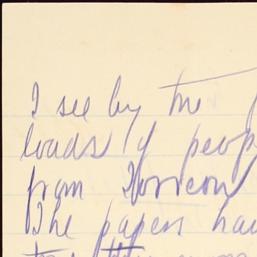 I see by the
loads of peop
from
The papers hav